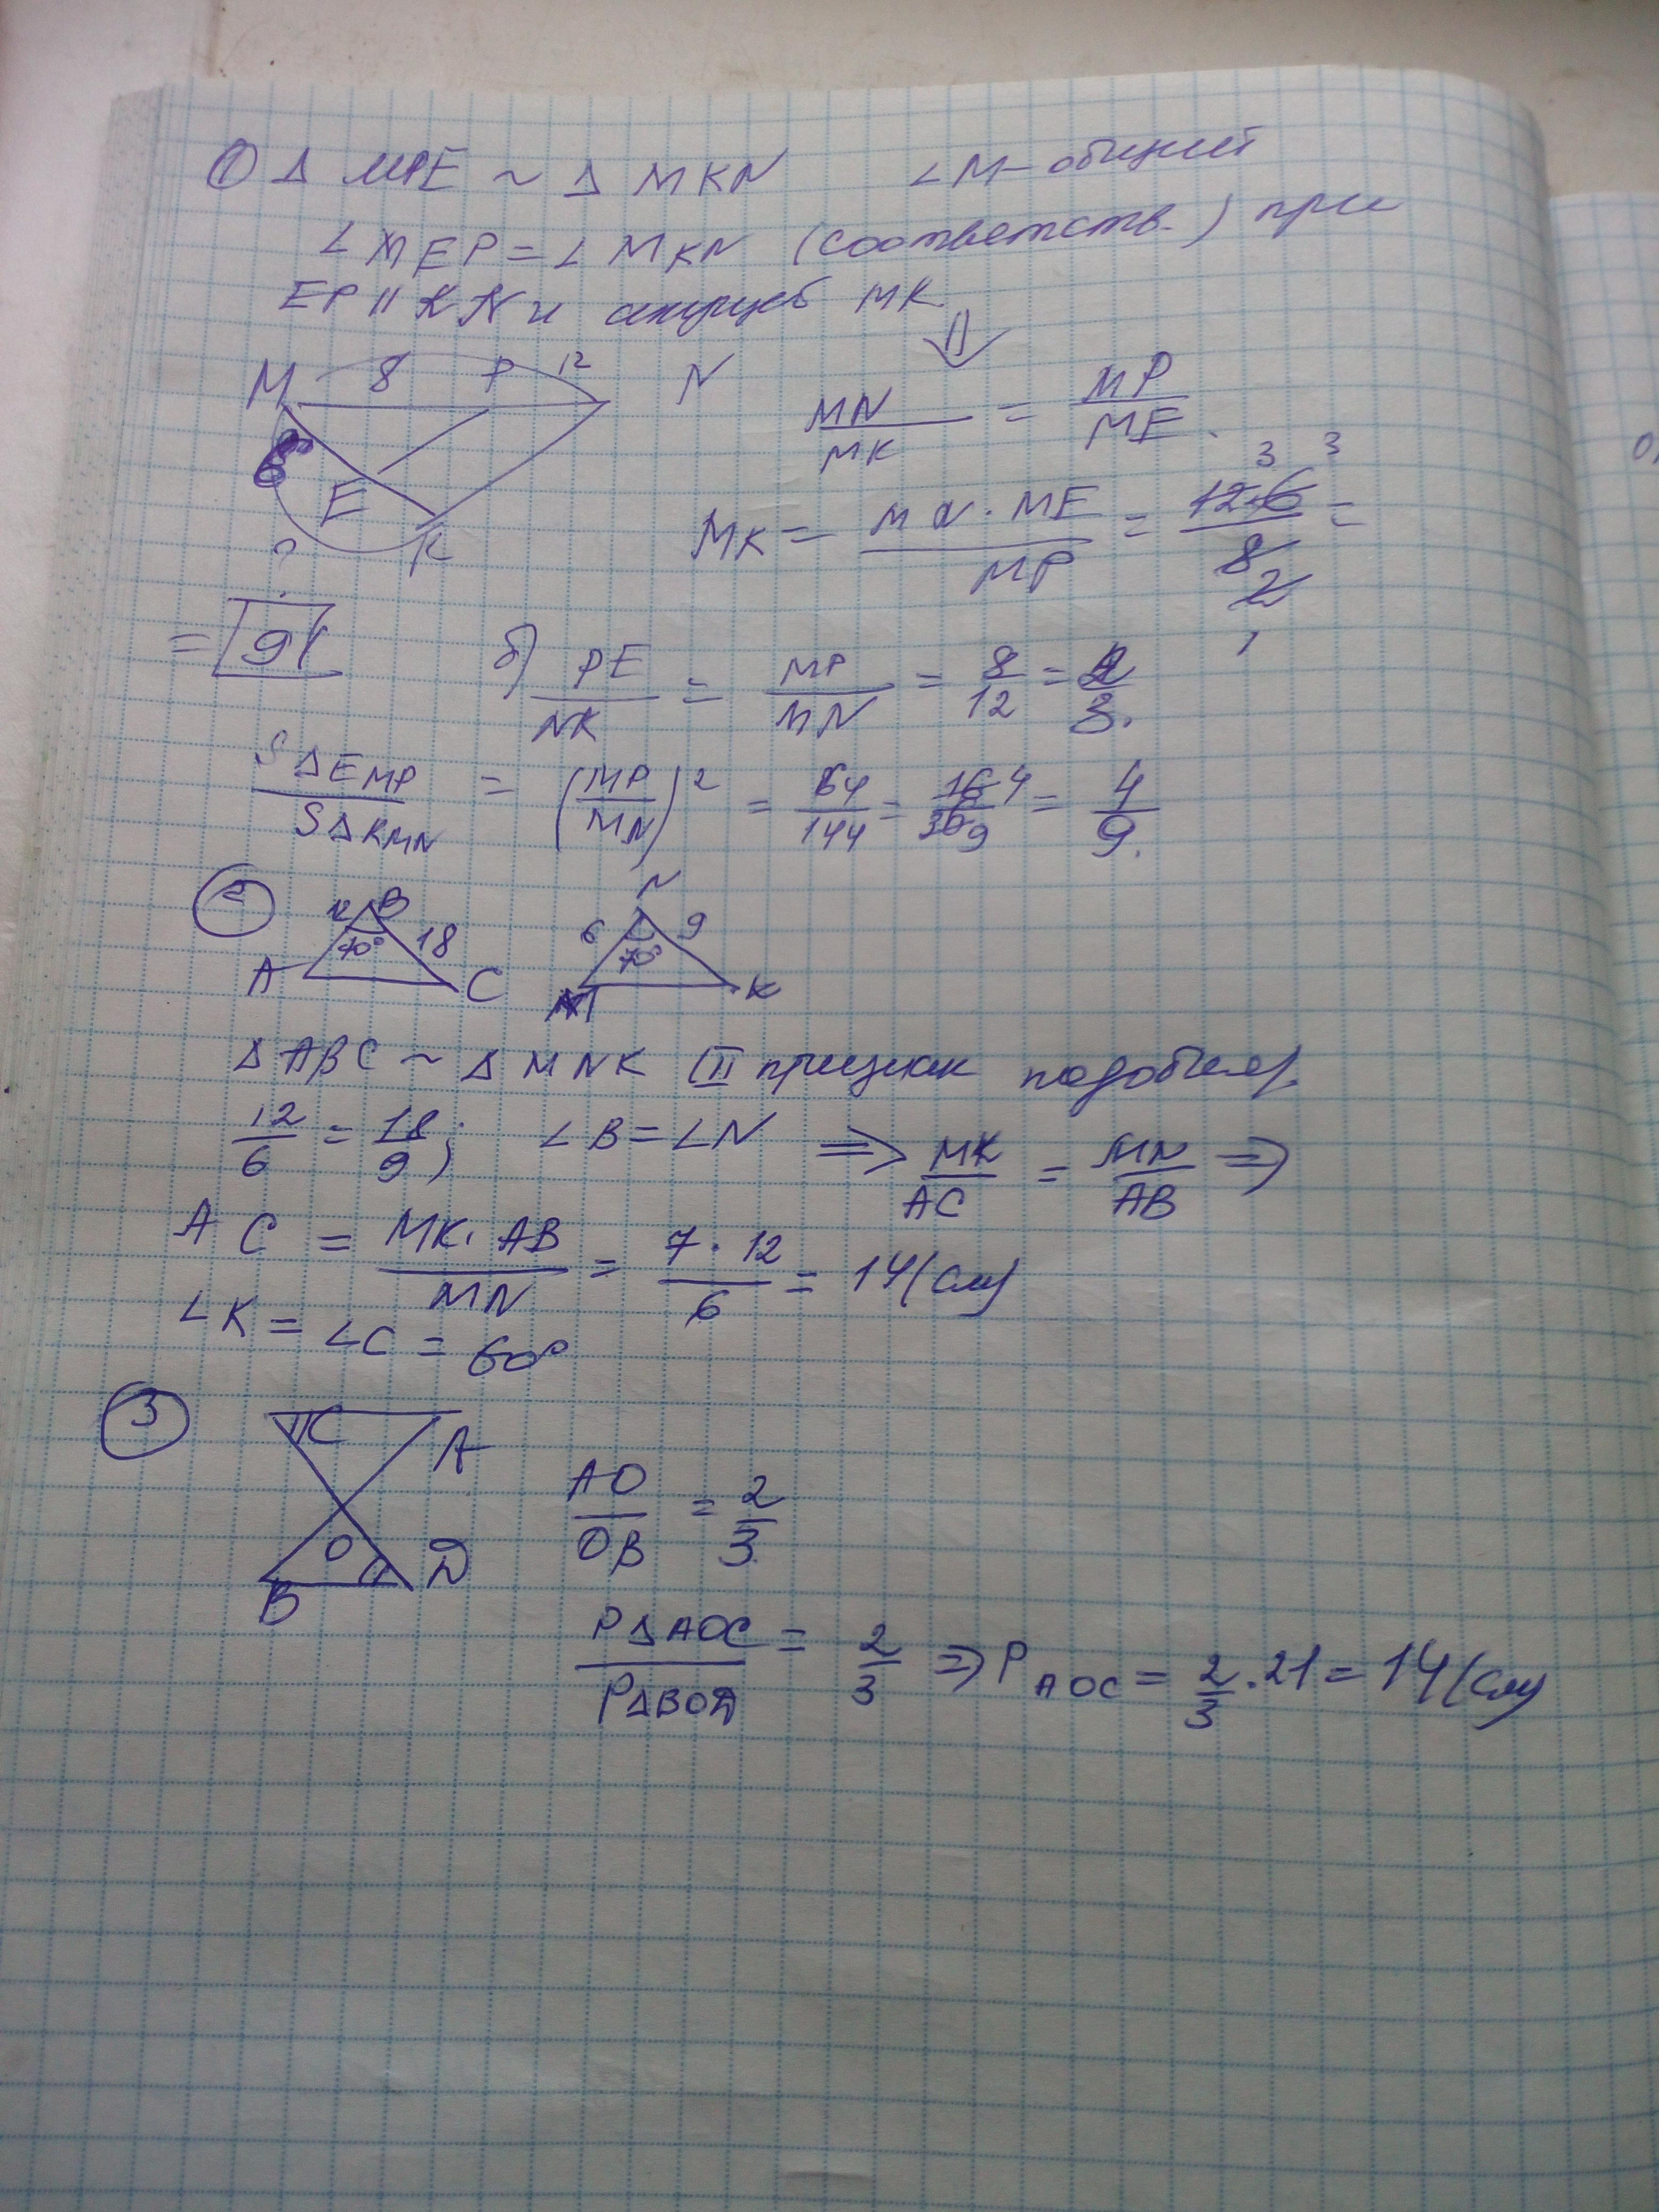 ① Δ MPE ~ Δ MKN ∠M - общий
∠ MEP = ∠ MKN (соответств.) при
EP || KN и секущей MK
⇓
M 8 P 12 N
6 E K ?
MN/MK = MP/ME
MK = MN · ME/MP = 12·6/8 =
3 3
2
1
= 9
б) PE/NK = MP/MN = 8/12 = 2/3.
SΔEMP/SΔKMN = (MP/MN)² = 64/144 = 16/36 = 4/9.
4
9
② 12 B 18 70° A C
N 6 9 70° M K
Δ ABC ~ Δ MNK (II признак подобия).
12/6 = 18/9; ∠B = ∠N ⇒ MK/AC = MN/AB ⇒
AC = MK · AB/MN = 7 · 12/6 = 14 (см)
∠K = ∠C = 60°
③ C A O B D
AO/OB = 2/3
PΔAOC/PΔBOD = 2/3 ⇒ P AOC = 2/3 · 21 = 14 (см)